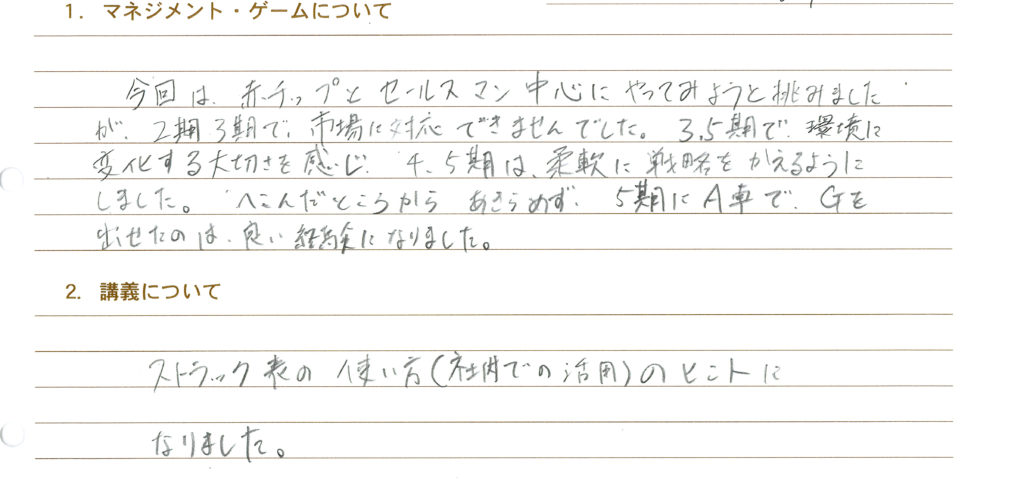 1. マネジメント・ゲームについて
今回は、赤チップと セールスマン中心に やってみようと挑みました
が、2期3期で、市場に対応できませんでした。 3.5期で、環境に
変化する大切さを感じ、4、5期は、柔軟に戦略をかえるように
しました。 へこんだところから あきらめず、5期にA卓で、Gを
出せたのは、良い経験になりました。
2. 講義について
ストラック表の 使い方(社内での活用)のヒントに
なりました。